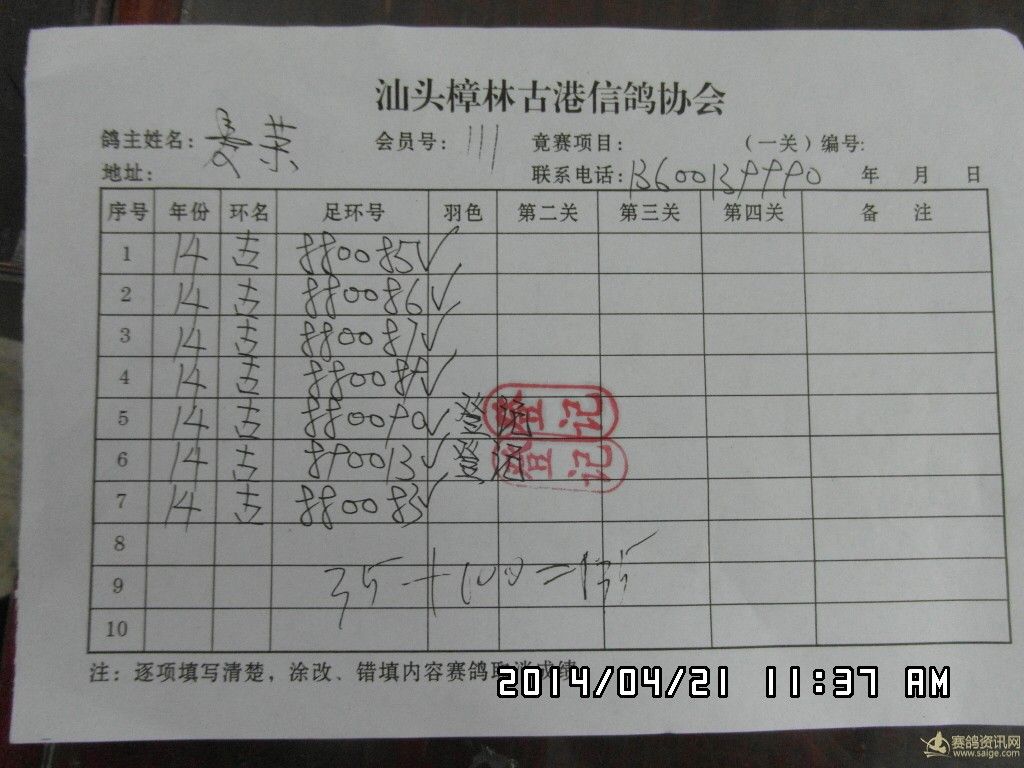 汕头樟林古港信鸽协会
鸽主姓名: 荣 会员号: 111 竟赛项目: (一关) 编号:
地址: 联系电话: 13600139990 年 月 日
序号 年份 环名 足环号 羽色 第二关 第三关 第四关 备 注
1 14 古 880085 ✓
2 14 古 880086 ✓
3 14 古 880087 ✓
4 14 古 880089 ✓
5 14 古 880090 ✓ 登记
6 14 古 890013 ✓ 登记
7 14 古 880083 ✓
8
9 35+100=135
10
注: 逐项填写清楚, 涂改、错填内容赛鸽取消成绩
2014/04/21 11:37 AM
赛鸽资讯网
www.saige.com